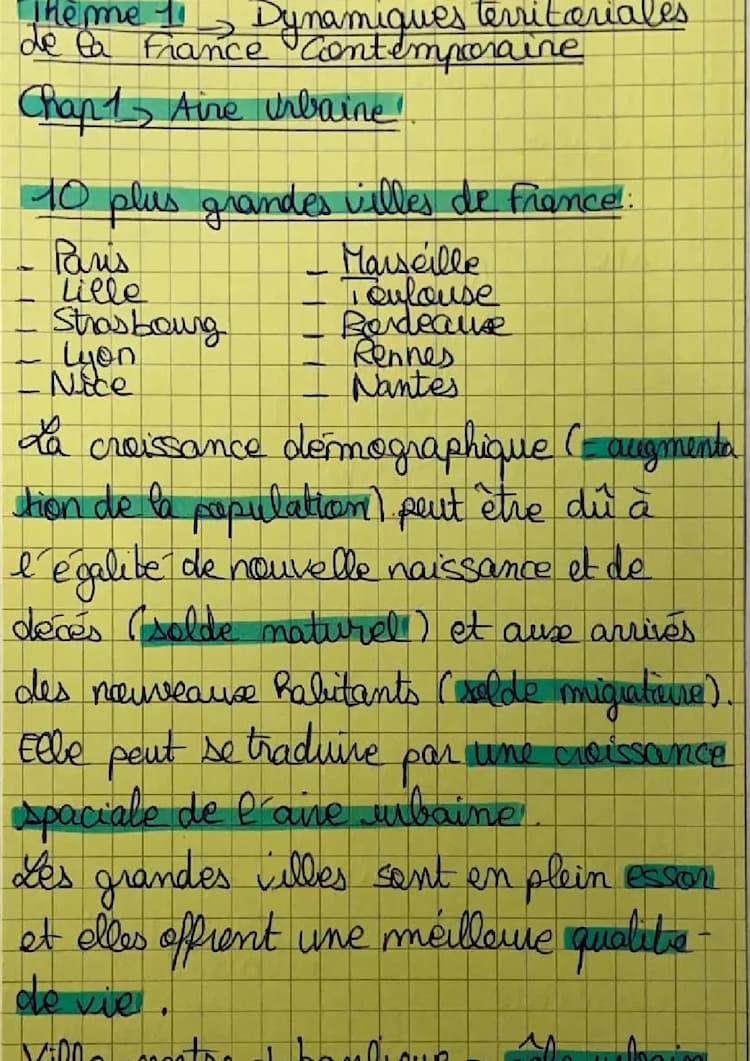 Thème 1 → Dynamiques territoriales
de la France Contemporaine
Chap1 → Aire Urbaine
10 plus grandes villes de France:
- Paris - Marseille
- Lille - Toulouse
- Strasbourg - Bordeaux
- Lyon - Rennes
- Nice - Nantes
La croissance démographique (= augmenta
tion de la population) peut être dû à
l'égalité de nouvelle naissance et de
décés (solde naturel) et aux arrivés
des nouveaux habitants (solde migratoire).
Elle peut se traduire par une croissance
spaciale de l'aire urbaine.
Les grandes villes sont en plein essor
et elles offrent une meilleure qualité
de vie.